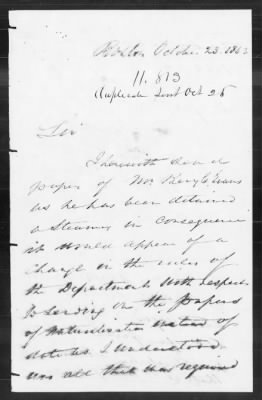 Boston October 23. 1862
11.813
(Duplicate Sent Oct 25
Sir
I herewith send
papers of Mr Evans
as he has been detained
a Steamer in consequence
it would appear of a
change in the rules of
the Department with respect
to sending on the papers
of naturalization instead of
 I understood
was all that was required